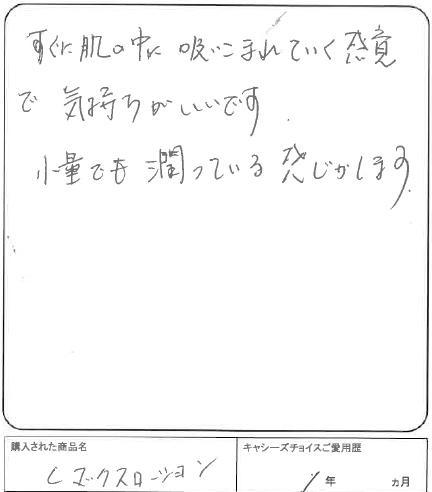 すぐに肌の中に吸いこまれていく感覚
で 気持ちがいいです
小量でも潤っている感じがします
購入された商品名
キャシーズチョイスご愛用歴
Lエックスローション
1年 ヵ月